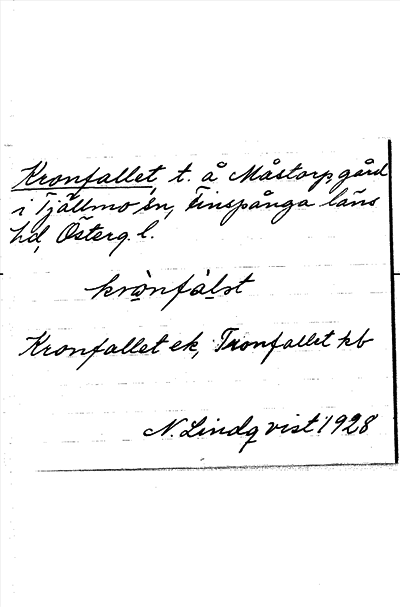 Kronfallet, t. å Måstorps gård
i Tjällmo sn, Finspånga läns
hd, Österg. l.
krònfàlət
Kronfallet ek, Tronfallet kb
N. Lindqvist 1928